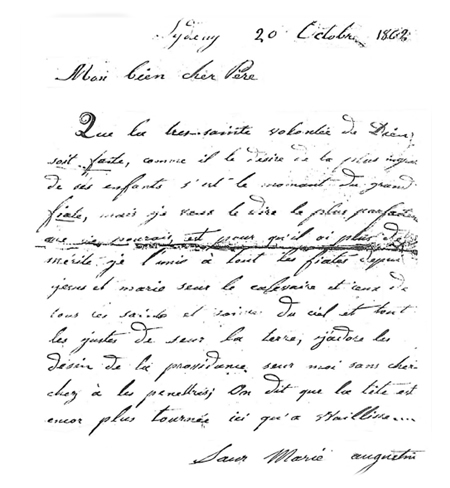 Sydeny 20 Octobre 1862
Mon bien cher Père
Que la tres-sainte volontée de Dieu
soit faite, comme il le desire de la plus ingra
de ses enfants s'est le momant du grand
fiate, mais je veus le dire le plus parfaitem
que je pourai, est pour qu'il oi plus de
mérite je l'unis à tout les fiates depui
jesus et marie seur le calevaire et ceux de
tous ces saints et saintes du ciel et tout
les justes de seur la terre, j'adore les
desin de la providance seur moi sans cher
chez à les penettris; On dit que la tête est
encor plus tournée ici qu'a Vaillise....
Sœur Marie augustin